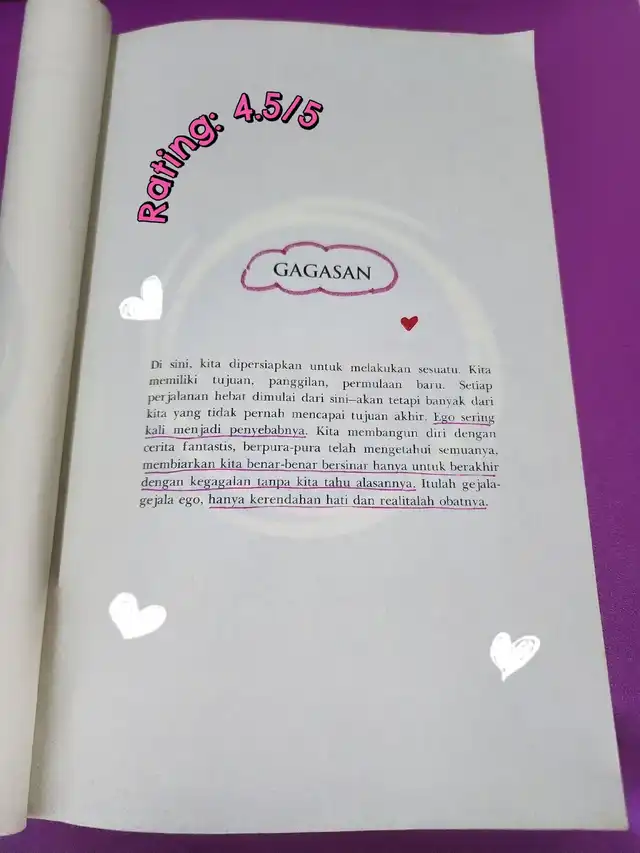 Rating: 4.5/5
GAGASAN
Di sini, kita dipersiapkan untuk melakukan sesuatu. Kita
memiliki tujuan, panggilan, permulaan baru. Setiap
perjalanan hebat dimulai dari sini—akan tetapi banyak dari
kita yang tidak pernah mencapai tujuan akhir. Ego sering
kali menjadi penyebabnya. Kita membangun diri dengan
cerita fantastis, berpura-pura telah mengetahui semuanya,
membiarkan kita benar-benar bersinar hanya untuk berakhir
dengan kegagalan tanpa kita tahu alasannya. Itulah gejala-
gejala ego, hanya kerendahan hati dan realitalah obatnya.